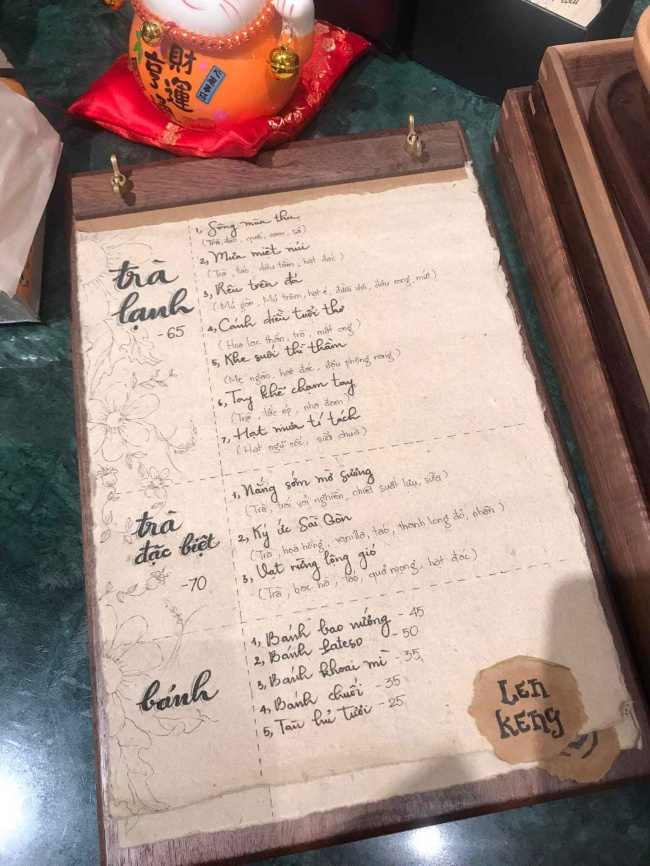 財
運
trà
lạnh
-65
1, Sông mùa thu
(Trà, đào, quế, cam, sả)
2, Mưa miệt núi
(Trà, táo, dâu tằm, hạt đác)
3, Rêu trên đá
(Mủ gòn, Mủ trôm, hạt é, đười ươi, dâu rong, mứt)
4, Cánh diều tuổi thơ
(Hoa lạc thần, trà, mật ong)
5, Khe suối thì thầm
(Me ngào, hạt đác, đậu phộng rang)
6, Tay khẽ chạm tay
(Trà, tắc ép, nha đam)
7, Hạt mưa tí tách
(Hạt ngũ cốc, sữa chua)
trà
đặc biệt
-70
1, Nắng sớm mờ sương
(Trà, trái vả nghiền, chiết suất lựu, sữa)
2, Ký ức Sài Gòn
(Trà, hoa hồng, vanilla, táo, thanh long đỏ, nhãn)
3, Vạt rừng lộng gió
(Trà, bạc hà, táo, quả mọng, hạt đác)
bánh
1, Bánh bao nướng - 45
2, Bánh Lateso - 50
3, Bánh khoai mì - 35
4, Bánh chuối - 35
5, Tàu hủ tươi - 25
LEN
KENG